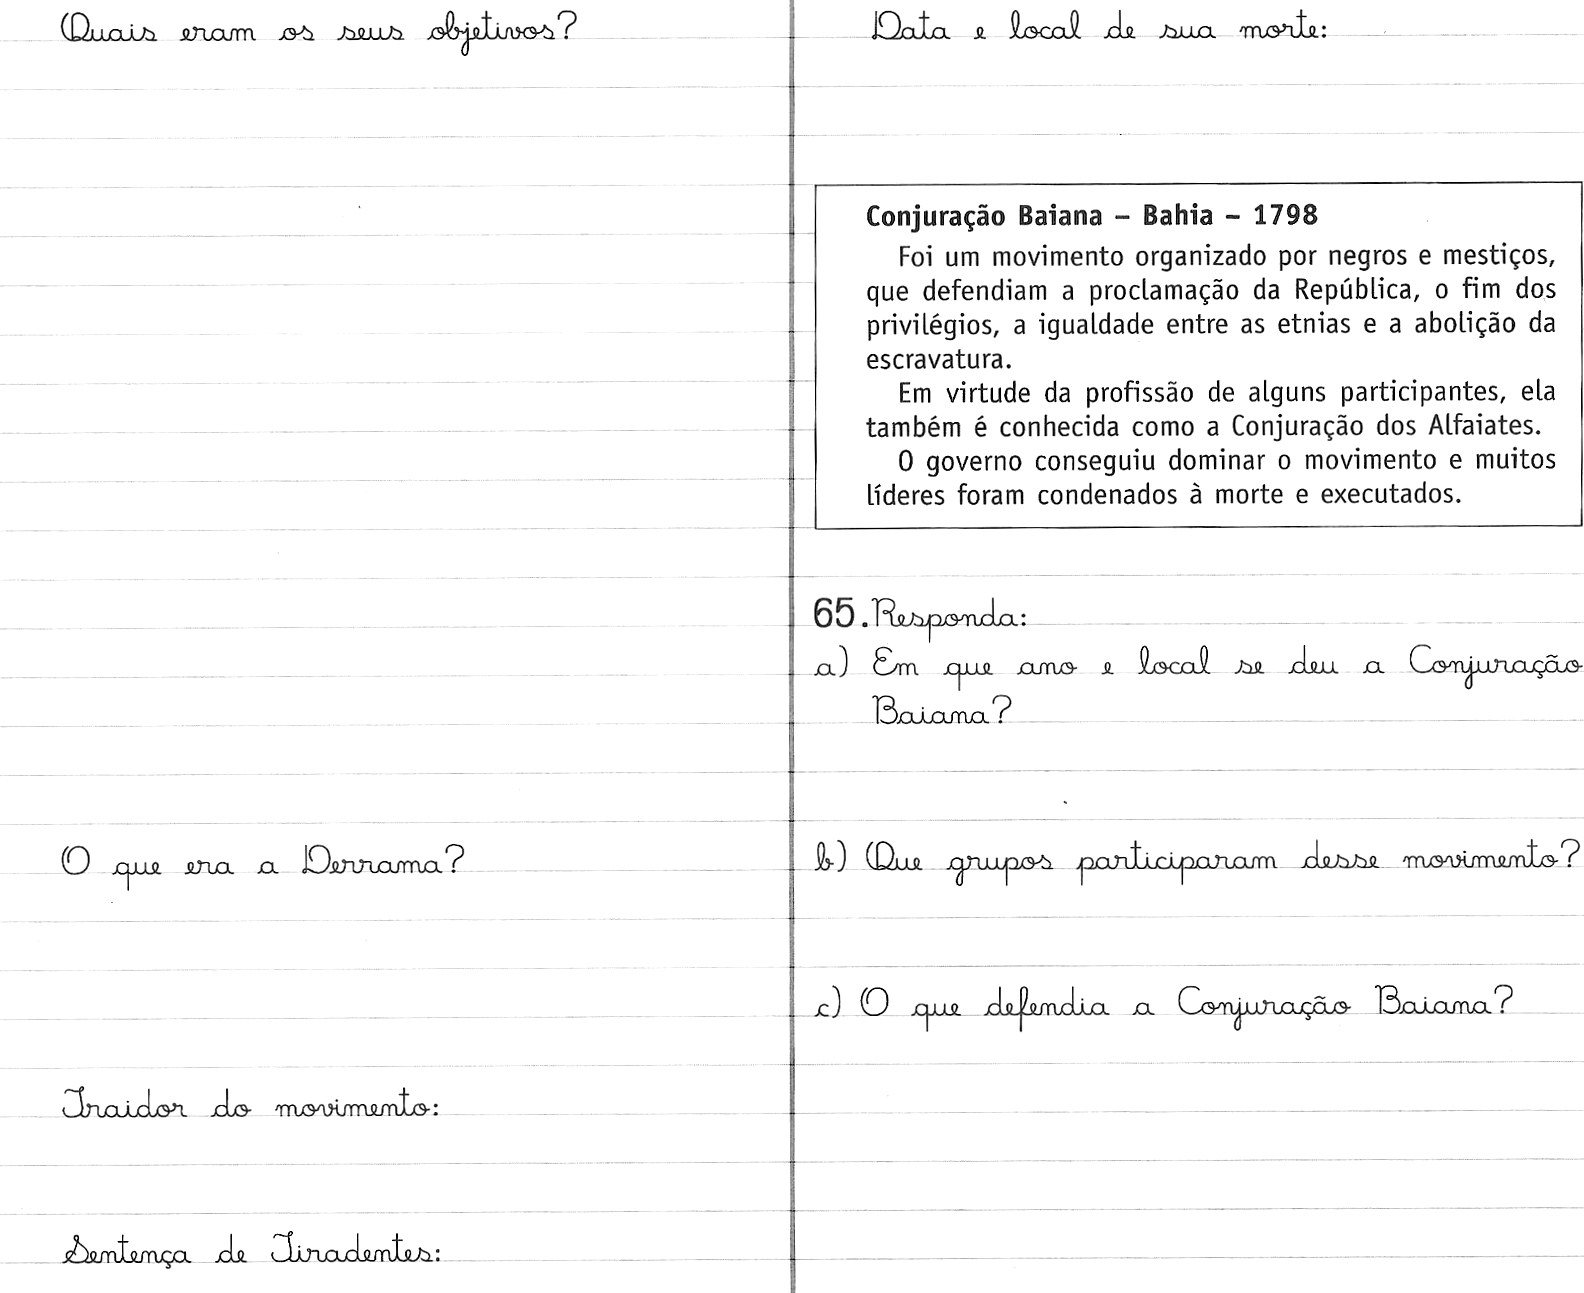 Quais eram os seus objetivos?
O que era a Derrama?
Traidor do movimento:
Sentença de Tiradentes:
Data e local de sua morte:
Conjuração Baiana – Bahia – 1798
Foi um movimento organizado por negros e mestiços,
que defendiam a proclamação da República, o fim dos
privilégios, a igualdade entre as etnias e a abolição da
escravatura.
Em virtude da profissão de alguns participantes, ela
também é conhecida como a Conjuração dos Alfaiates.
O governo conseguiu dominar o movimento e muitos
líderes foram condenados à morte e executados.
65. Responda:
a) Em que ano e local se deu a Conjuração
Baiana?
b) Que grupos participaram desse movimento?
c) O que defendia a Conjuração Baiana?